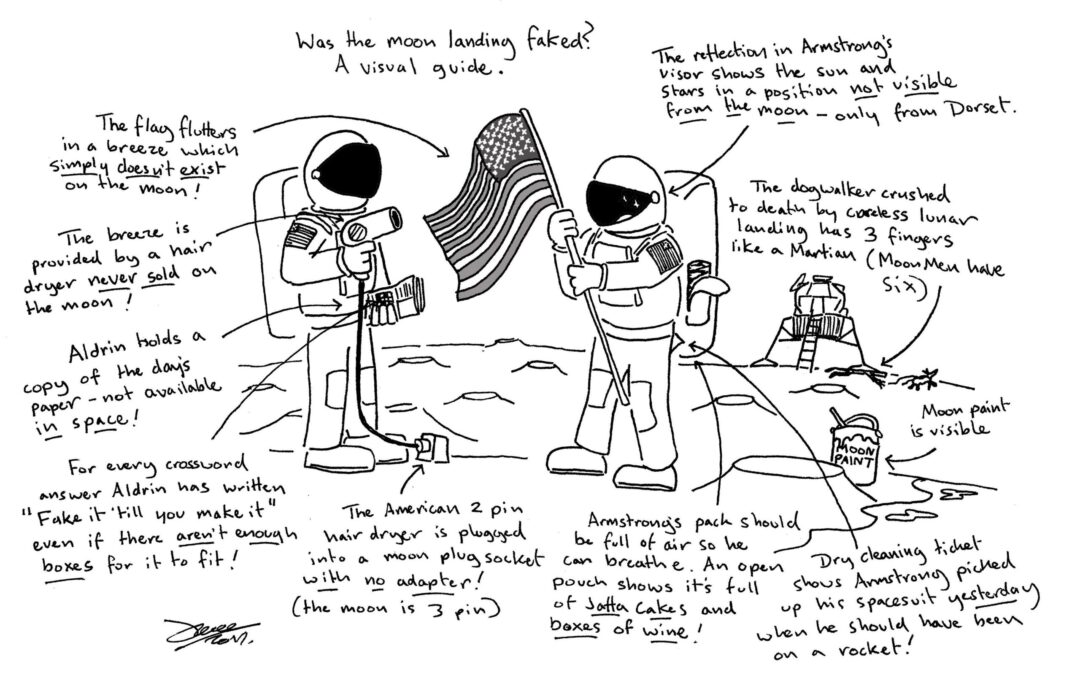 Was the moon landing faked?
A visual guide.
The flag flutters
in a breeze which
simply doesn't exist
on the moon!
The breeze is
provided by a hair
dryer never sold on
the moon!
Aldrin holds a
copy of the day's
paper - not available
in space!
For every crossword
answer Aldrin has written
"Fake it 'till you make it"
even if there aren't enough
boxes for it to fit!
The American 2 pin
hair dryer is plugged
into a moon plug socket
with no adapter!
(the moon is 3 pin)
Armstrong's pack should
be full of air so he
can breathe. An open
pouch shows it's full
of Jaffa Cakes and
boxes of wine!
Dry cleaning ticket
shows Armstrong picked
up his spacesuit yesterday
when he should have been
on a rocket!
Moon paint
is visible
MOON
PAINT
The dogwalker crushed
to death by careless lunar
landing has 3 fingers
like a Martian (Moon Men have
Six)
The reflection in Armstrong's
visor shows the sun and
stars in a position not visible
from the moon - only from Dorset.